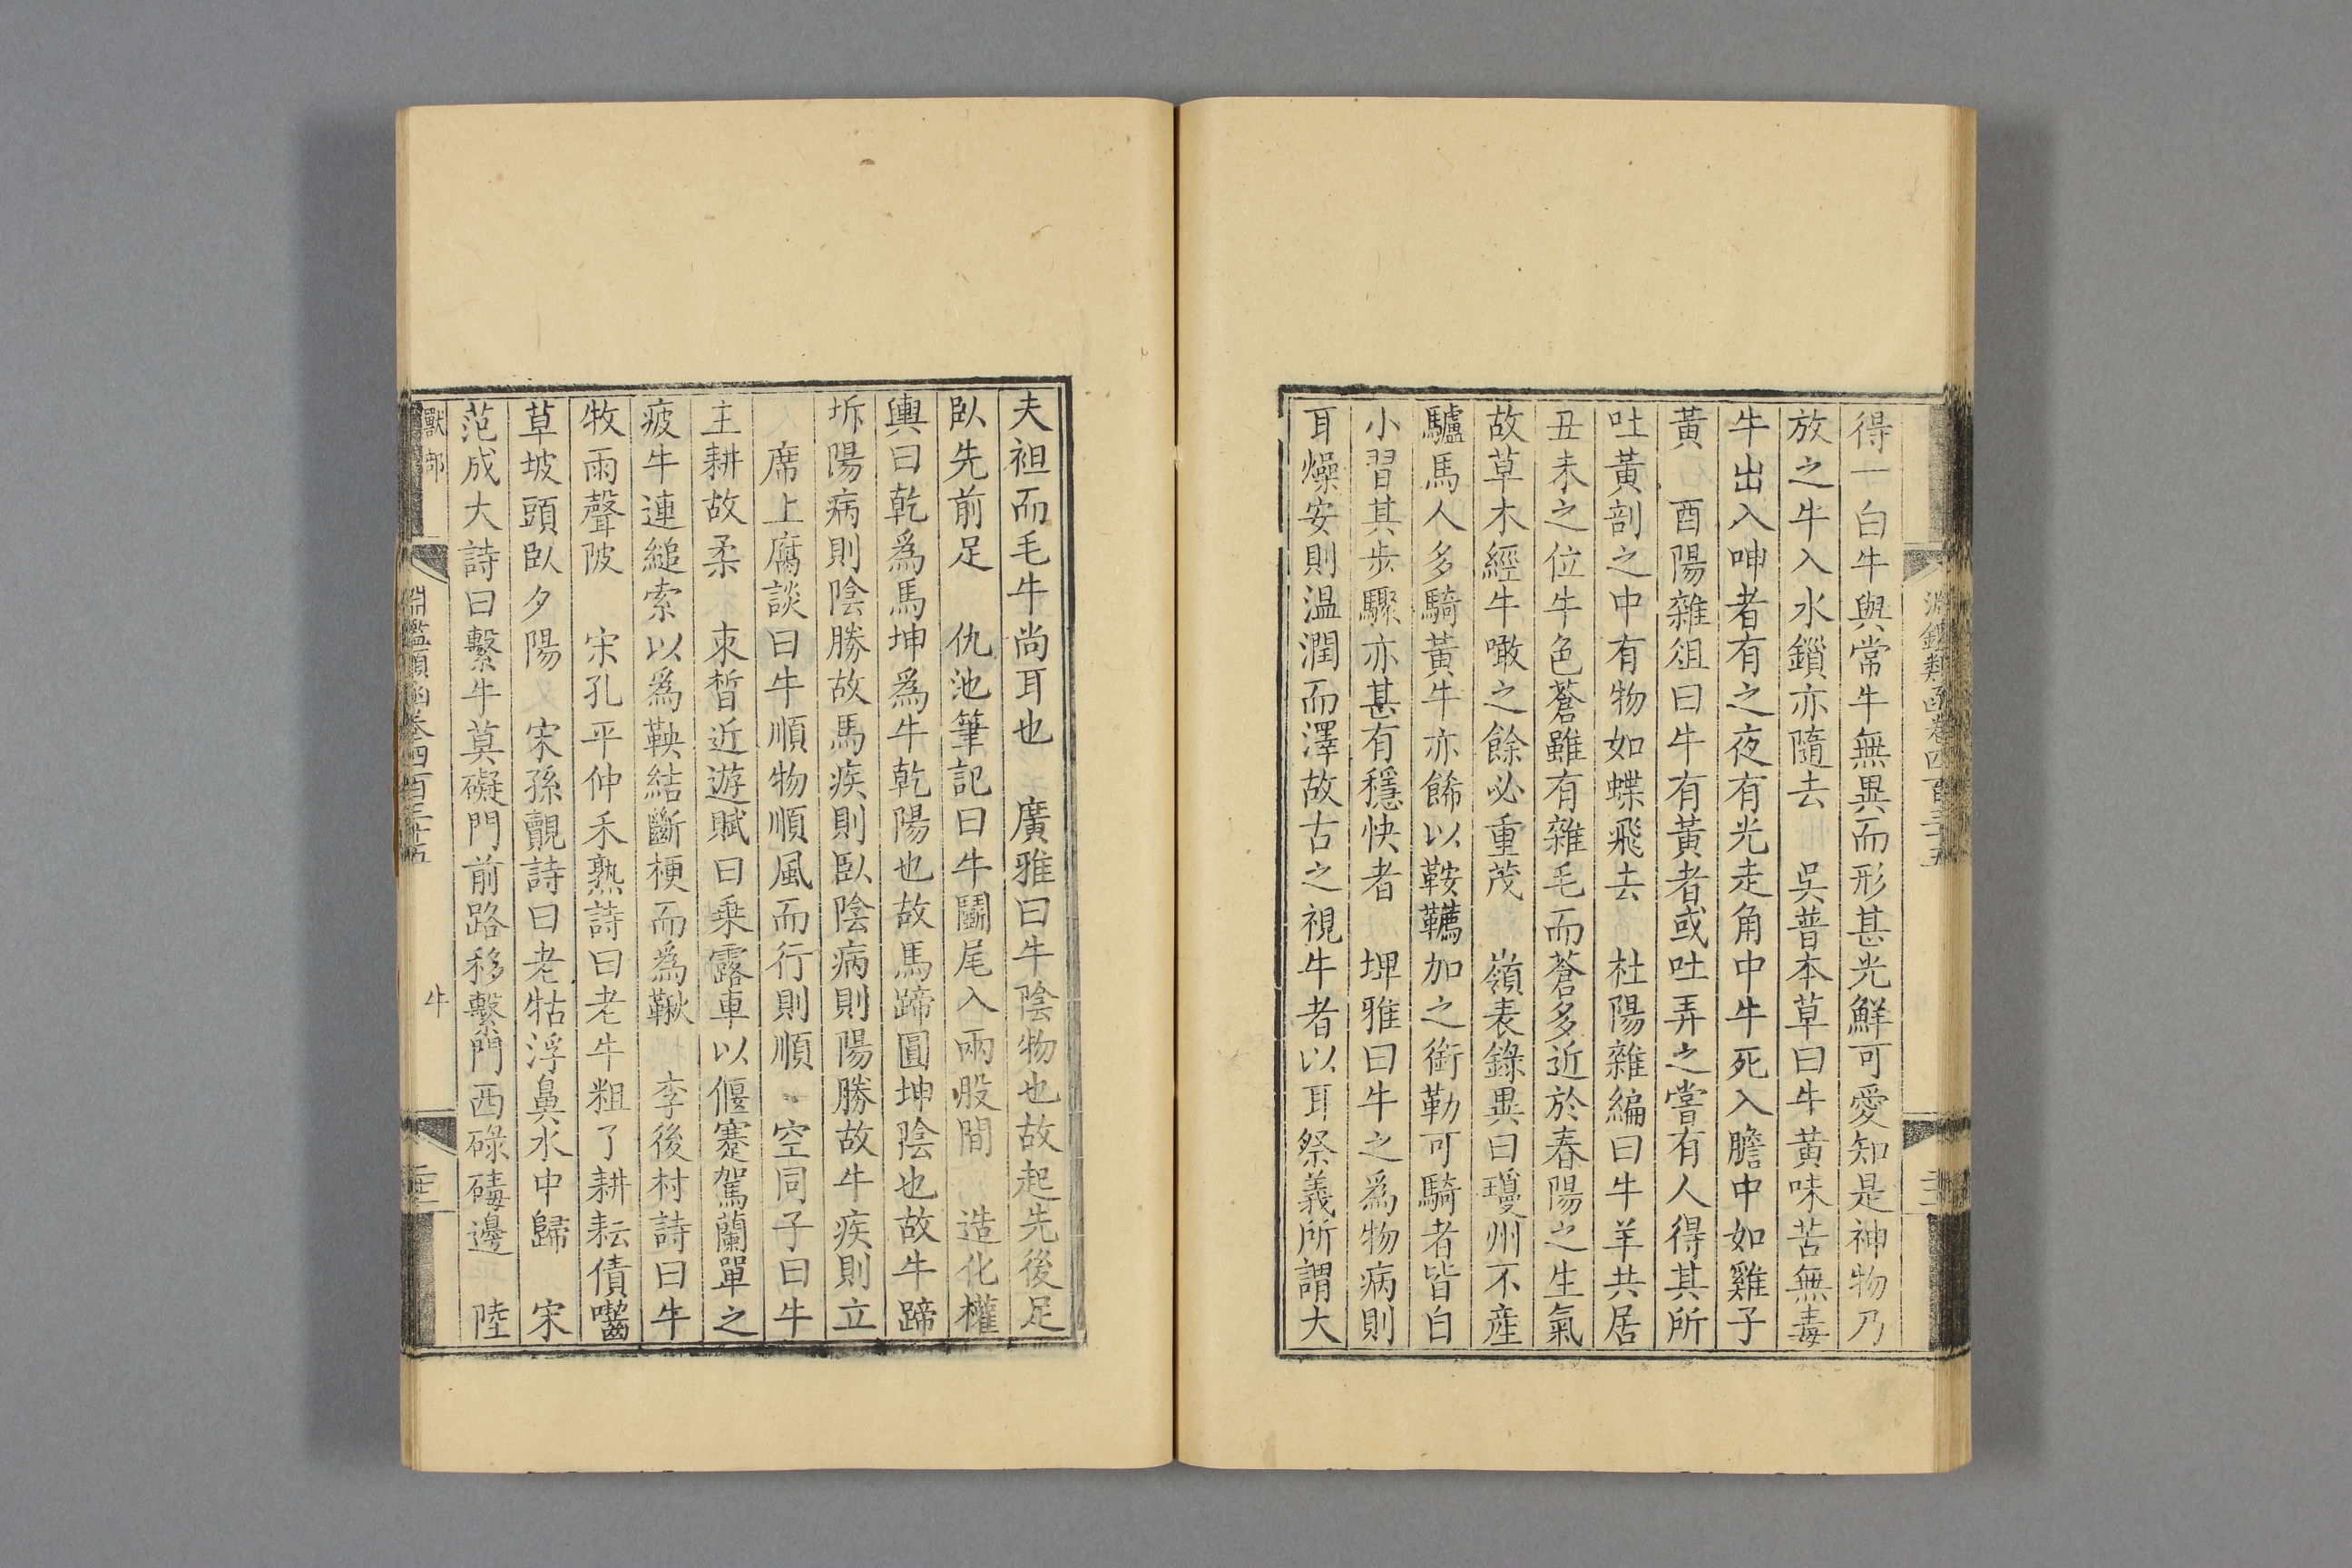 淵鑑類函卷四百三十五
得一白牛與常牛無異而形甚光鮮可愛知是神物乃
放之牛入水鎖亦隨去　吳普本草曰牛黃味苦無毒
牛出入呻者有之夜有光走角中牛死入膽中如雞子
黃　酉陽雜俎曰牛有黃者或吐弄之嘗有人得其所
吐黃剖之中有物如蝶飛去　杜陽雜編曰牛羊共居
丑未之位牛色蒼雖有雜毛而蒼多近於春陽之生氣
故草木經牛噉之餘必重茂　嶺表錄異曰瓊州不產
驢馬人多騎黃牛亦飾以鞍韉加之銜勒可騎者皆自
小習其步驟亦甚有穩快者　埤雅曰牛之爲物病則
耳燥安則温潤而澤故古之視牛者以耳祭義所謂大
夫袒而毛牛尚耳也　廣雅曰牛陰物也故起先後足
臥先前足　仇池筆記曰牛鬭尾入兩股間　造化權
輿曰乾爲馬坤爲牛乾陽也故馬蹄圓坤陰也故牛蹄
坼陽病則陰勝故馬疾則臥陰病則陽勝故牛疾則立
席上腐談曰牛順物順風而行則順　空同子曰牛
主耕故柔　束晳近遊賦曰乗露車以偃蹇駕蘭單之
疲牛連縋索以爲鞅結斷梗而爲鞦　李後村詩曰牛
牧雨聲陂　宋孔平仲禾熟詩曰老牛粗了耕耘債囓
草坡頭臥夕陽　宋孫覿詩曰老牯浮鼻水中歸　宋
范成大詩曰繫牛莫礙門前路移繫門西碌碡邊　陸
獸部
淵鑑類函卷四百三十五
牛